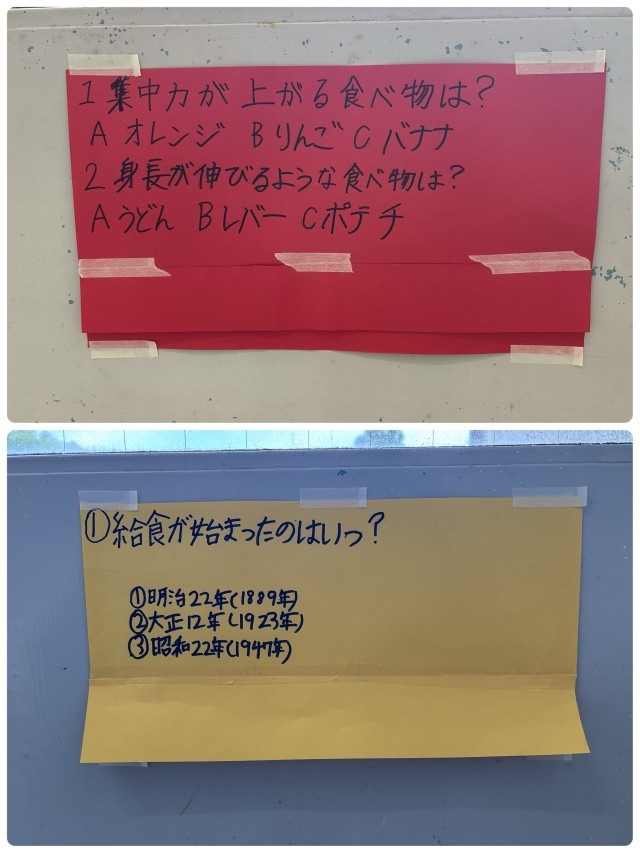 1 集中力が 上がる食べ物は?
A オレンジ B りんご C バナナ
2 身長が伸びるような食べ物は?
A うどん B レバー C ポテチ
① 給食が始まったのはいつ?
① 明治22年(1889年)
② 大正12年(1923年)
③ 昭和22年(1947年)